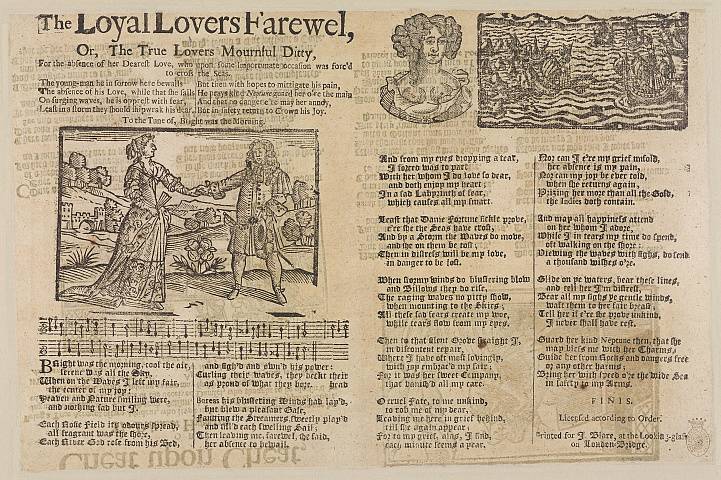 The Loyal Lovers Farewel,
Or, The True Lovers Mournful Ditty,
For the absence of her Dearest Love, who upon some importunate occasion was forc'd
to cross the Seas.
The young-man he in sorrow here bewails
The absence of his Love, while that she sails
On surging waves, he is opprest with fear,
Least in a storm they should shipwrak his dear,
But then with hopes to mittigate his pain,
He prays kind Neptune guard her o're the main
And that no danger e're may her annoy,
But in safety return to Crown his Joy.
To the Tune of, Bright was the Morning.
Bright was the morning, cool the air,
serene was all the Sky,
When on the Waves I left my fair,
the center of my joy:
Heaven and Nature smiling were,
and nothing sad but I.
Each Rosie Field its odours spread,
all fragrant was the shore,
Each River God rose from his Bed,
and sigh'd and own'd his power:
Curling their waves, they deckt their head
as proud of what they bore.
Boreas his blustering Winds had lay'd,
but blew a pleasant Gale,
Fanning the Streamers sweetly play'd
and fill'd each swelling Sail;
Then leaving me, farewel, she said,
her absence to bewail.
And from my eyes dropping a tear,
I forced was to part
With her whom I do love so dear,
and doth enjoy my heart;
In a sad Labyrinth of fear,
which causes all my smart.
Least that Dame Fortune fickle prove,
e're she the Seas have crost,
And by a Storm the Waves do move,
and she on them be tost;
Then in distress will be my love,
in danger to be lost.
When stormy winds do blustering blow
and Billows they do rise,
The raging waves no pitty show,
when mounting to the Skies;
All these sad fears create my woe,
while tears flow from my eyes.
Then to that silent Grove straight I,
in discontent repair,
Where I have oft most lovingly,
with joy embrac'd my fair;
For it was her sweet Company,
that banish'd all my care.
O cruel Fate, to me unkind,
to rob me of my dear,
Leaving me here in grief behind,
till she again appear;
For to my grief, alas, I find,
each minute seems a year.
Nor can I e're my grief unfold,
her absence is my pain,
Nor can my joy be ever told
when she returns again,
Prizing her more than all the Gold,
the Indies doth contain.
And may all happiness attend
on her whom I adore,
While I in tears my time do spend,
oft walking on the shore:
Viewing the waves with sighs, do send
a thousand wishes o're.
Glide on ye waters, bear these lines,
and tell her I'm distrest,
Bear all my sighs ye gentle winds,
waft them to her fair breast;
Tell her if e're she prove unkind,
I never shall have rest.
Guard her kind Neptune then, that she
may bless me with her Charms,
Guide her from Rocks and dangers free
or any other harms;
Bring her with speed o're the wide Sea
in safety to my Arms.
FINIS.
Licensed according to Order.
Printed for J. Blare, at the Looking-glass
on London-Bridge.
Cheat upon Cheat